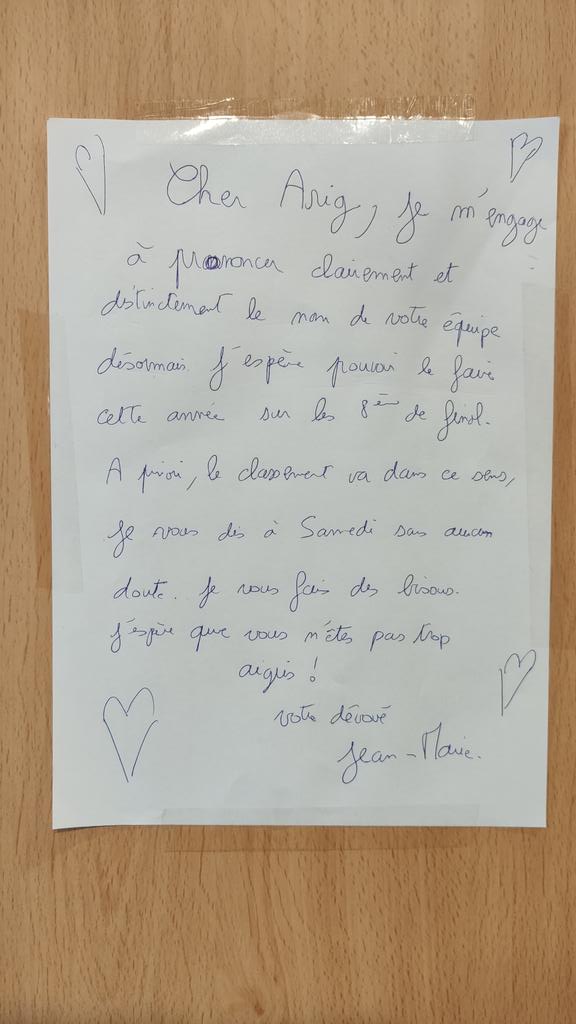 Cher Arig, je m'engage
à prononcer clairement et
distinctement le nom de votre équipe
désormais. J'espère pouvoir le faire
cette année sur les 8ème de final.
A priori, le classement va dans ce sens,
je vous dis à Samedi sans aucun
doute. Je vous fais des bisous.
J'espère que vous n'êtes pas trop
aigris !
votre dévoué
Jean-Marie.